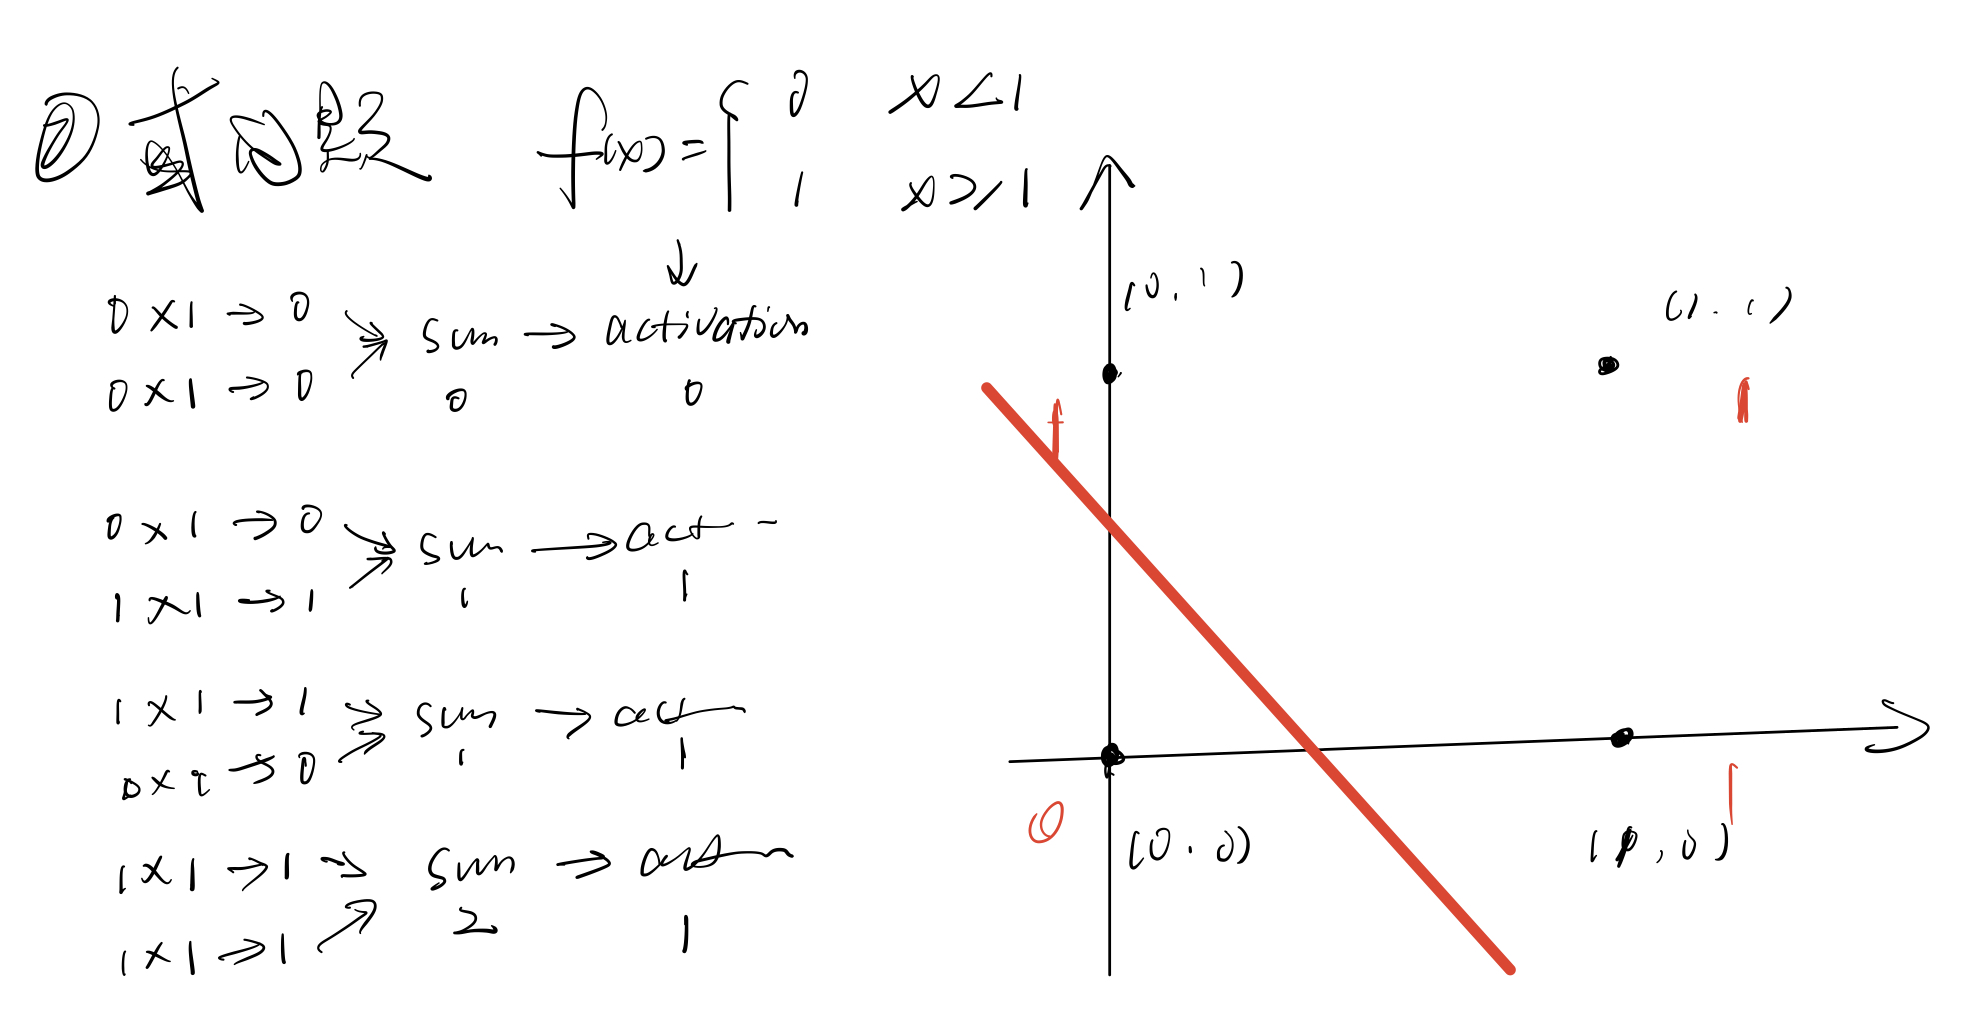 ② 或问题 f(x) = { 0 x<1
1 x≥1
↓
0 × 1 → 0
sum → activation
0 × 1 → 0
0 0
0 × 1 → 0
sum → act -
1 × 1 → 1
1 1
1 × 1 → 1
sum → act
0 × 1 → 0
1 1
1 × 1 → 1 → sum → act
2 1
1 × 1 → 1
(0, 1)
(1, 1)
1
1
0
(0, 0)
1
(1, 0)